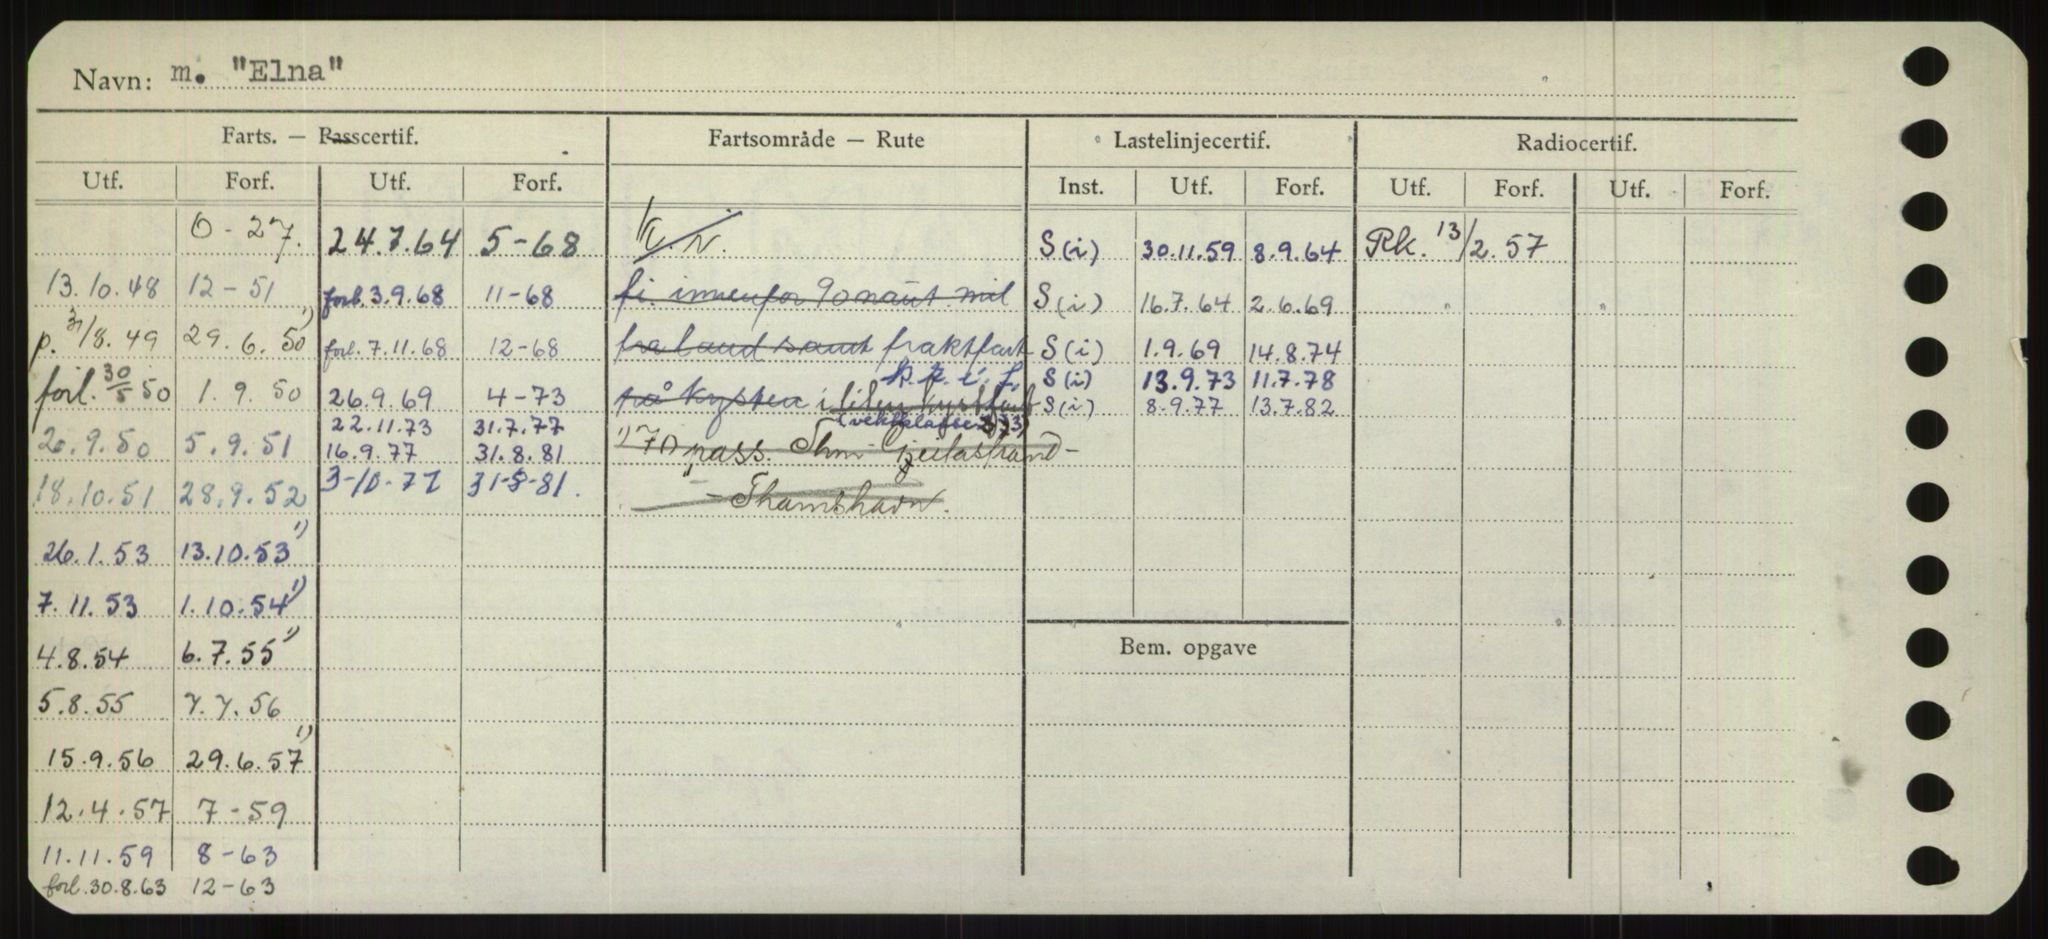 Navn: m. "Elna"
Farts. — Passcertif. Fartsområde — Rute Lastelinjecertif. Radiocertif.
Utf. Forf. Utf. Forf. Inst. Utf. Forf. Utf. Forf. Utf. Forf.
0-27. 24.7.64 5-68 S(i) 30.11.59 8.9.64 Rk. 13/2.57
13.10.48 12-51 forl. 3.9.68 11-68 fi. innenfor 90 naut mil S(i) 16.7.64 2.6.69
p. 31/8.49 29.6.50 1) forl. 7.11.68 12-68 fra land samt fraktfart S(i) 1.9.69 14.8.74
S(i) 13.9.73 11.7.78
forl. 30/5 50 1.9.50 26.9.69 4-73 på kysten i liten kystfart S(i) 8.9.77 13.7.82
22.11.73 31.7.77
20.9.50 5.9.51 16.9.77 31.8.81 1) 70 pass. Thm - Geitastrand -
18.10.51 28.9.52 3-10-77 31-8-81. - Thamshavn.
26.1.53 13.10.53 1)
7.11.53 1.10.54 1)
4.8.54 6.7.55 1)
Bem. opgave
5.8.55 7.7.56
15.9.56 29.6.57 1)
12.4.57 7-59
11.11.59 8-63
forl. 30.8.63 12-63